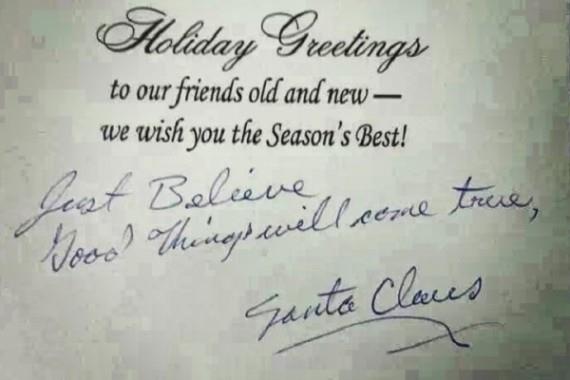 Holiday Greetings
to our friends old and new —
we wish you the Season's Best!
Just Believe
Good Things will come true,
Santa Claus